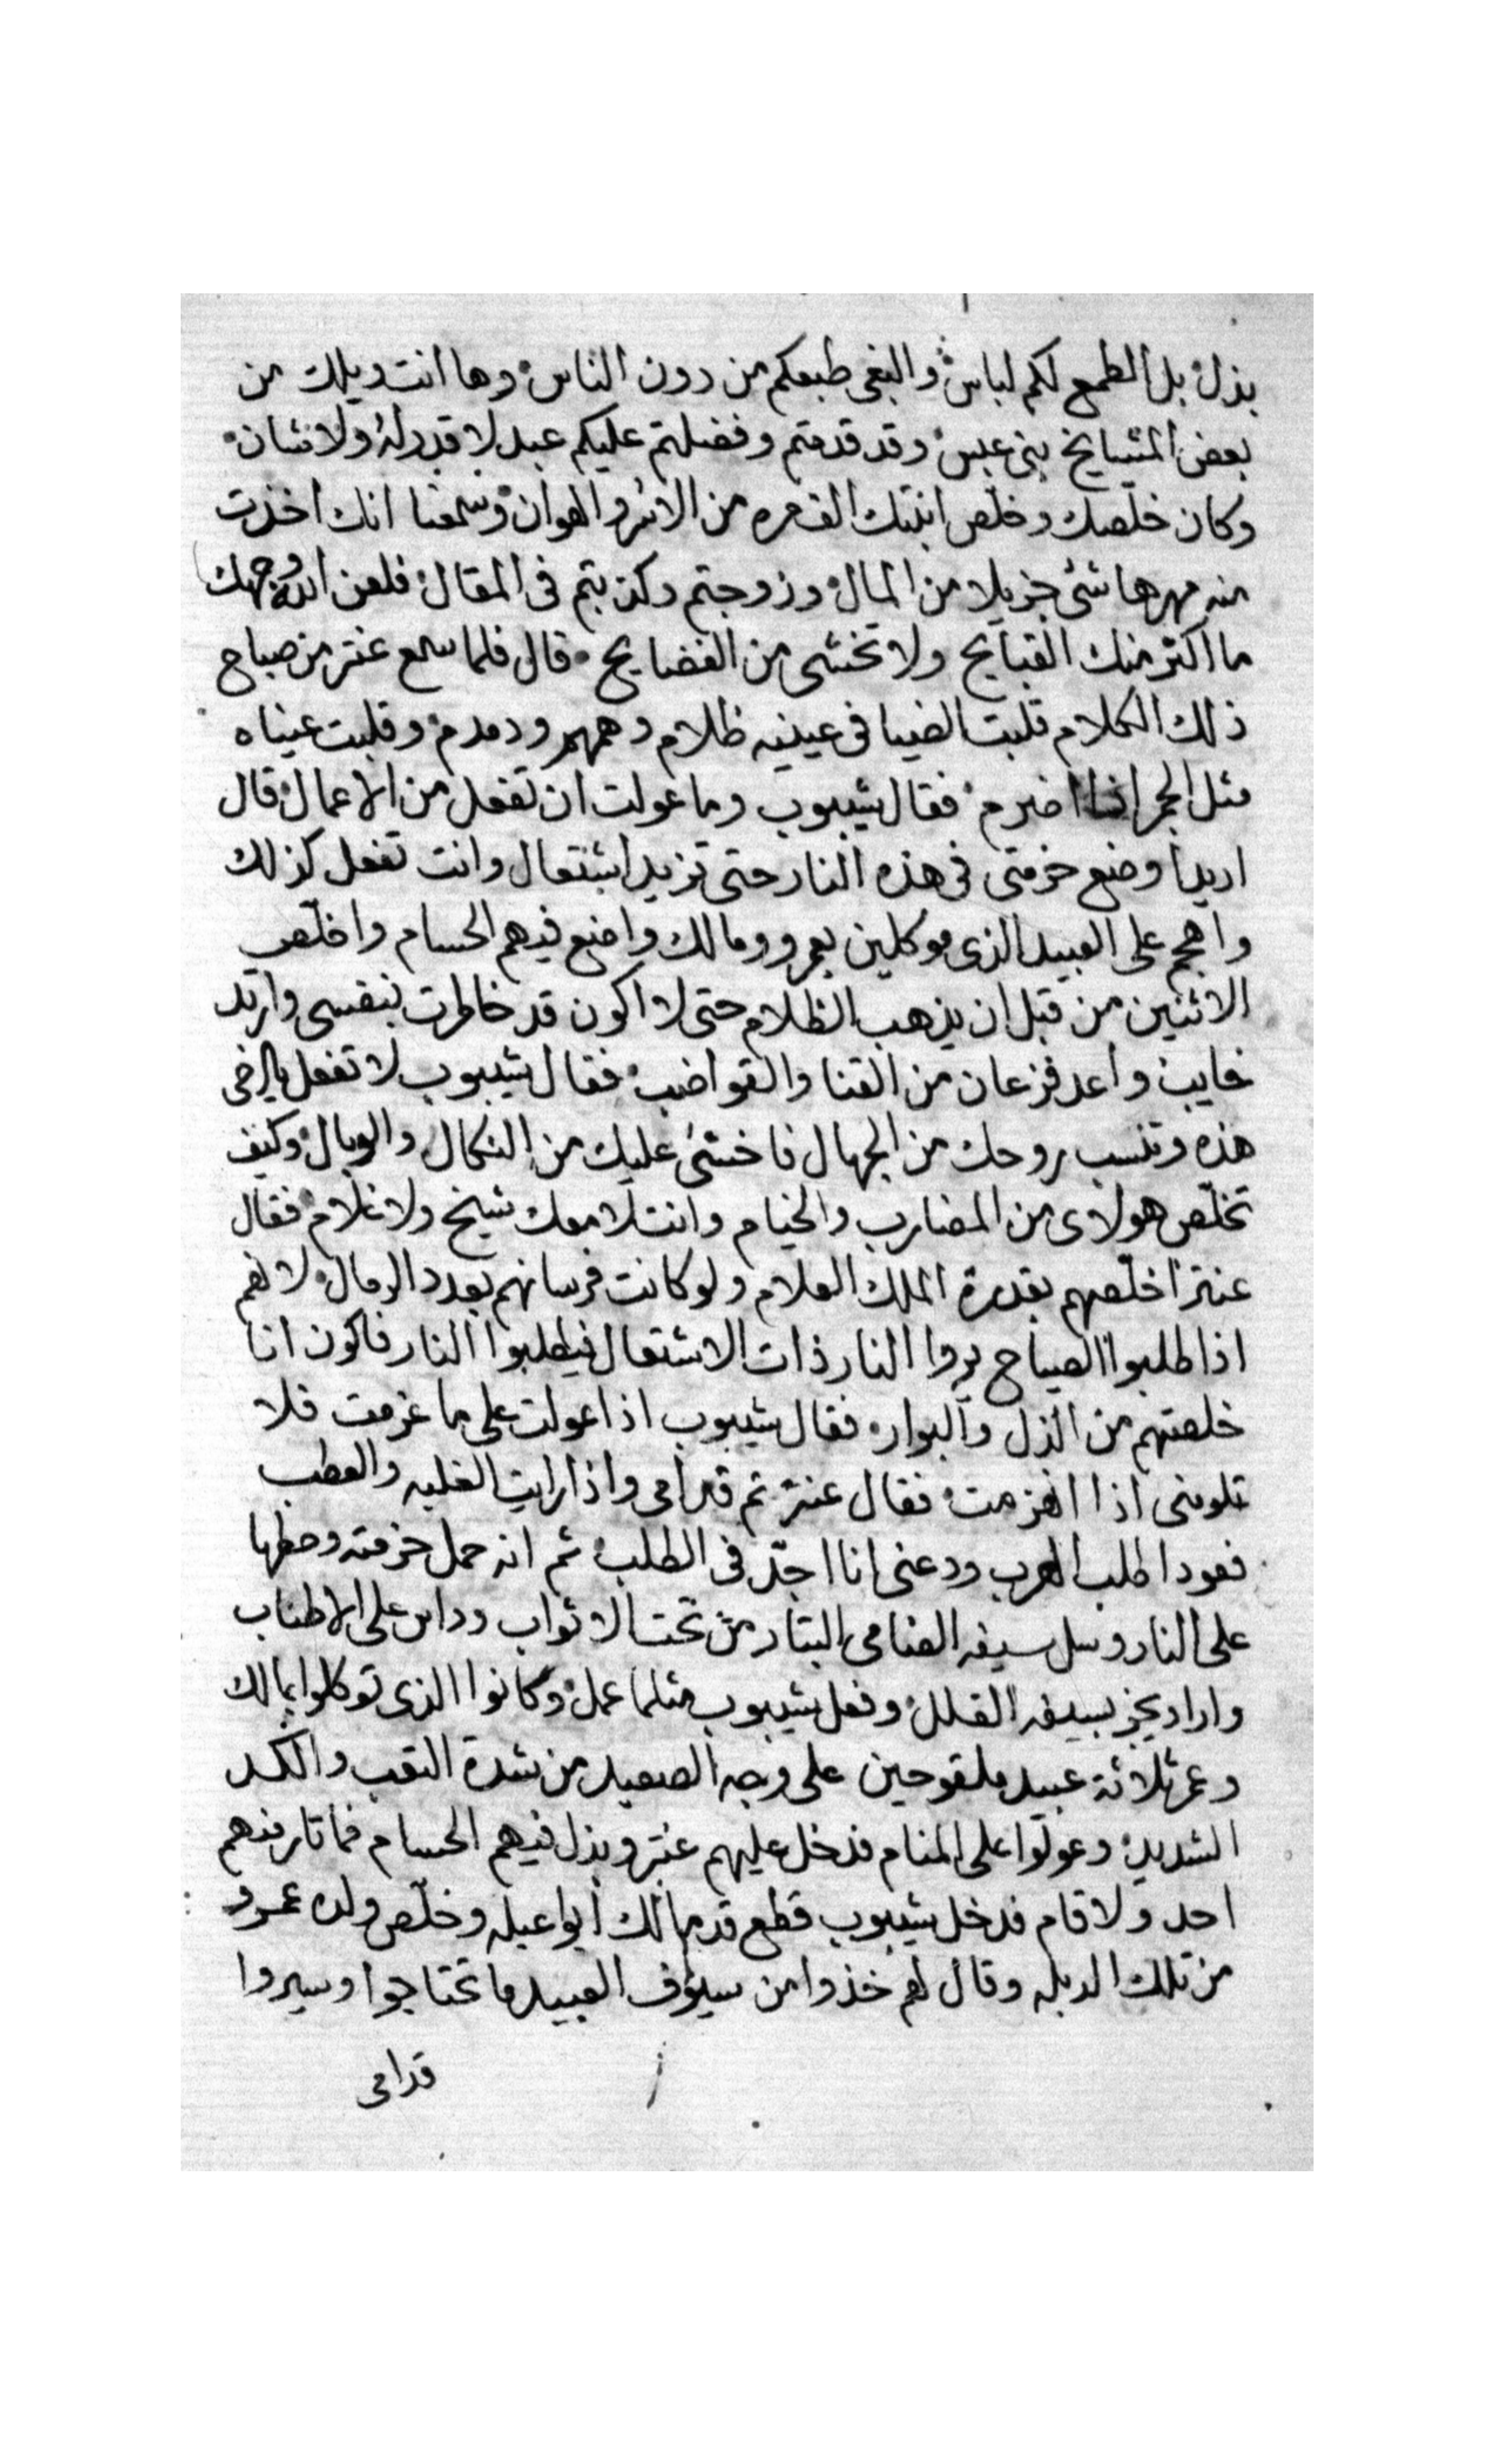 بذل بل الطمع لكم لباس والبغى طبعكم من دون الناس وها انت ويلك من
بعض المشايخ بنى عبس وقد قدمتم وفضلتم عليكم عبد لا قدر له ولا شان
وكان خلصك وخلص ابنتك الف مره من الاسر والهوان وسمعنا انك اخذت
منه مهرها شئ جزيلا من المال وزوجتم وكذبتم فى المقال فلعن الله وجهك
ما اكثر منك القبايح ولا تخشى من الفضايح قال فلما سمع عنتر من صباح
ذلك الكلام قلبت الضيا فى عينيه ظلام وهمهم ودمدم وقلبت عيناه
مثل الجمر اذا اضرم فقال شيبوب وما عولت ان تفعل من الاعمال قال
اريد اوضع حزمتى فى هذه النار حتى تزيد اشتعال وانت تفعل كذلك
واهجم على العبيد الذى موكلين بعمرو ومالك واضع فيهم الحسام واخلص
الاثنين من قبل ان يذهب الظلام حتى لا اكون قد خاطرت بنفسى وارتد
خايب واعد فزعان من القنا والقواضب فقال شيبوب لا تفعل يا اخى
هذه وتنسب روحك من الجهال فاخشى عليك من النكال والوبال وكيف
تخلص هولاى من المضارب والخيام وانت لا معك شيخ ولا غلام فقال
عنتر اخلصهم بقدرة الملك العلام ولو كانت فرسانهم بعدد الرمال لانهم
اذا طلبوا الصياح يروا النار ذات الاشتعال فيطلبوا النار فاكون انا
خلصتهم من الذل والبوار فقال شيبوب اذا عولت على ما عزمت فلا
تلومنى اذا انهزمت فقال عنتر تم قدامى واذا رايت الغلبه والعطب
فعود اطلب الهرب ودعنى انا اجد فى الطلب ثم انه حمل حزمته وحطها
على النار وسل سيفه الضامى البتار من تحت الاثواب وداس على الاطناب
واراد يجز بسيفه القلل وفعل شيبوب مثلما عمل وكانوا الذى توكلوا بمالك
وعمر ثلاثة عبيد ملقوحين على وجه الصعيد من شدة التعب والكد
الشديد وعولوا على المنام فدخل عليهم عنتر وبذل فيهم الحسام فما ثار منهم
احد ولا قام فدخل شيبوب قطع قد مالك ابوا عبله وخلص ولده عمرو
من تلك الدبله وقال لهم خذوا من سيوف العبيد ما تحتاجوا وسيروا
قدامى